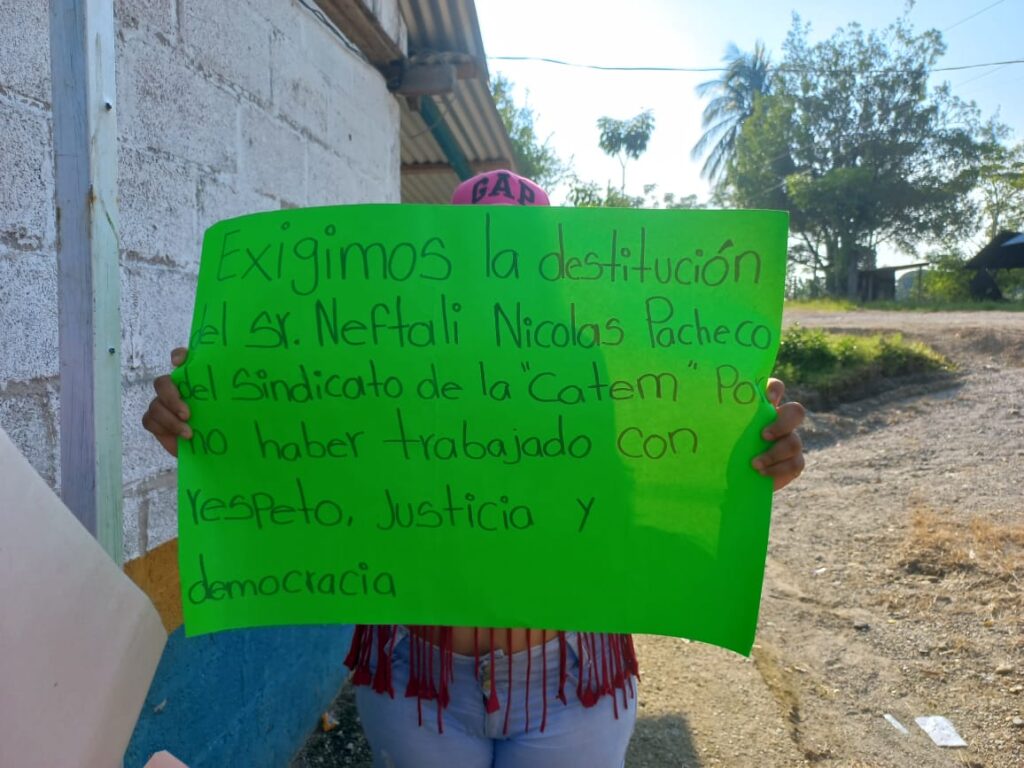 GAP
Exigimos la destitución
del sr. Neftali Nicolas Pacheco
del Sindicato de la "Catem" Por
no haber trabajado con
respeto, Justicia y
democracia